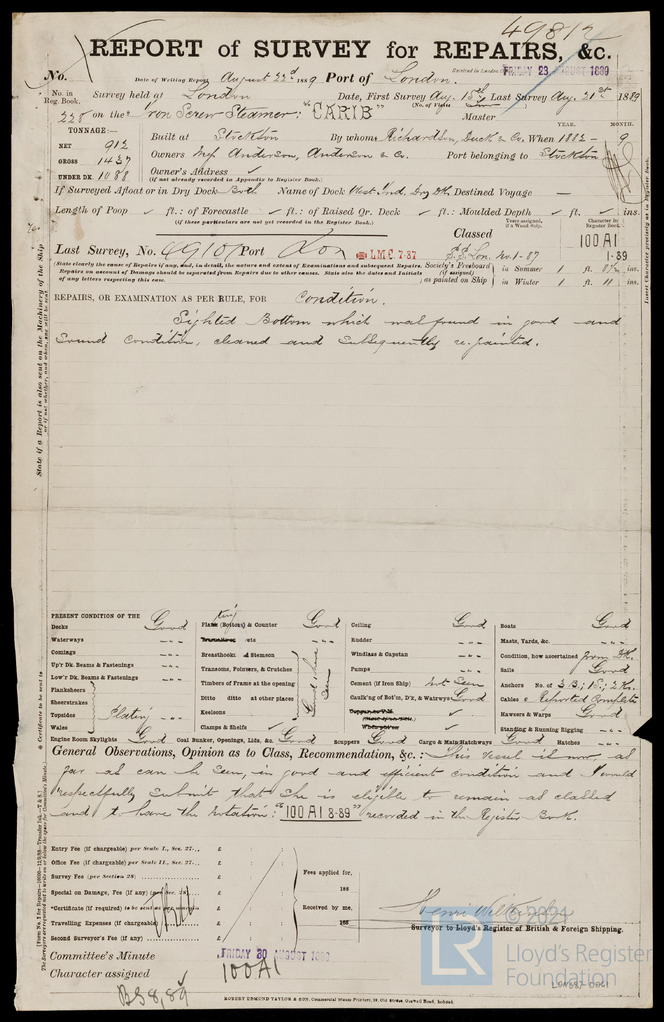 49812
REPORT of SURVEY for REPAIRS, &c.
No. Date of Writing Report August 22d 1889 Port of London. Received in London FRIDAY 23 AUGUST 1889
No. in Reg. Book. Survey held at London Date, First Survey Aug. 15th Last Survey Aug. 21st 1889
(No. of Visits)
228 on the Iron Screw Steamer: "CARIB" Master
TONNAGE:— YEAR. MONTH.
NET 912 Built at Stockton By whom Richardson, Duck & Co. When 1882 - 9
GROSS 1437 Owners Messrs Anderson, Anderson & Co. Port belonging to Stockton
UNDER DK. 1088 Owner's Address
(if not already recorded in Appendix to Register Book.)
If Surveyed Afloat or in Dry Dock Both Name of Dock West Ind. Dry Dk. Destined Voyage —
Length of Poop ft.: of Forecastle ft.: of Raised Qr. Deck ft.: Moulded Depth ft. ins.
(if these particulars are not yet recorded in the Register Book.)
Years assigned, if a Wood Ship. Character in Register Book.
Classed 100 A1
Last Survey, No. 49101 Port Lon LMC 7·87 S.S. Lon. No.1-87 1·89
(State clearly the cause of Repairs if any, and, in detail, the nature and extent of Examinations and subsequent Repairs.
Repairs on account of Damage should be separated from Repairs due to other causes. State also the dates and Initials
of any letters respecting this case.
Society's Freeboard (if assigned) as painted on Ship
in Summer 1 ft. 8½ ins.
in Winter 1 ft. 11 ins.
REPAIRS, OR EXAMINATION AS PER RULE, FOR Condition.
Sighted Bottom which was found in good and
sound condition, cleaned and subsequently re-painted.
State if a Report is also sent on the Machinery of the Ship
PRESENT CONDITION OF THE
Decks Good
Waterways "
Comings "
Up'r Dk. Beams & Fastenings "
Low'r Dk. Beams & Fastenings "
Planksheers
Sheerstrakes
Topsides Plating "
Wales
Plating (Bottom) & Counter Good
Breasthooks and Stemson
Transoms, Pointers, & Crutches
Timbers of Frame at the opening
Ditto ditto at other places
Keelsons
Good where seen
Clamps & Shelfs
Ceiling Good
Rudder "
Windlass & Capstan "
Pumps "
Cement (if Iron Ship) Not Seen
Caulk'g of Bot'm, D'k, & Waterways Good
Boats Good
Masts, Yards, &c. "
Condition, how ascertained from Dk.
Sails Good
Anchors No. of 3 B; 1 S; 2 K.
Cables Reported Complete
Hawsers & Warps Good
Standing & Running Rigging "
Engine Room Skylights Good Coal Bunker, Openings, Lids, &c. Good Scuppers Good Cargo & Main Hatchways Good Hatches "
General Observations, Opinion as to Class, Recommendation, &c.: This vessel is now, as
far as can be seen, in good and efficient condition and I would
respectfully submit that she is eligible to remain as classed
and to have the notation: "100 A1 8·89" recorded in the Register Book.
Entry Fee (if chargeable) per Scale I., Sec. 27 £ : :
Office Fee (if chargeable) per Scale II., Sec. 27 £ : :
Survey Fee (per Section 28) £ : :
Special on Damage, Fee (if any) (per Sec. 28) £ : :
*Certificate (if required) to be sent as per margin £ : :
Travelling Expenses (if chargeable) £ : :
Second Surveyor's Fee (if any) £ : :
Fees applied for,
188
Received by me,
188
Surveyor to Lloyd's Register of British & Foreign Shipping.
Committee's Minute FRIDAY 30 AUGUST 1889
Character assigned 100A1
BS 8,89
ROBERT EDMUND TAYLOR & SON, Commercial Steam Printers, 19, Old Street, Goswell Road, London.
© 2021
LR
Lloyd's Register
Foundation
LON687-0041